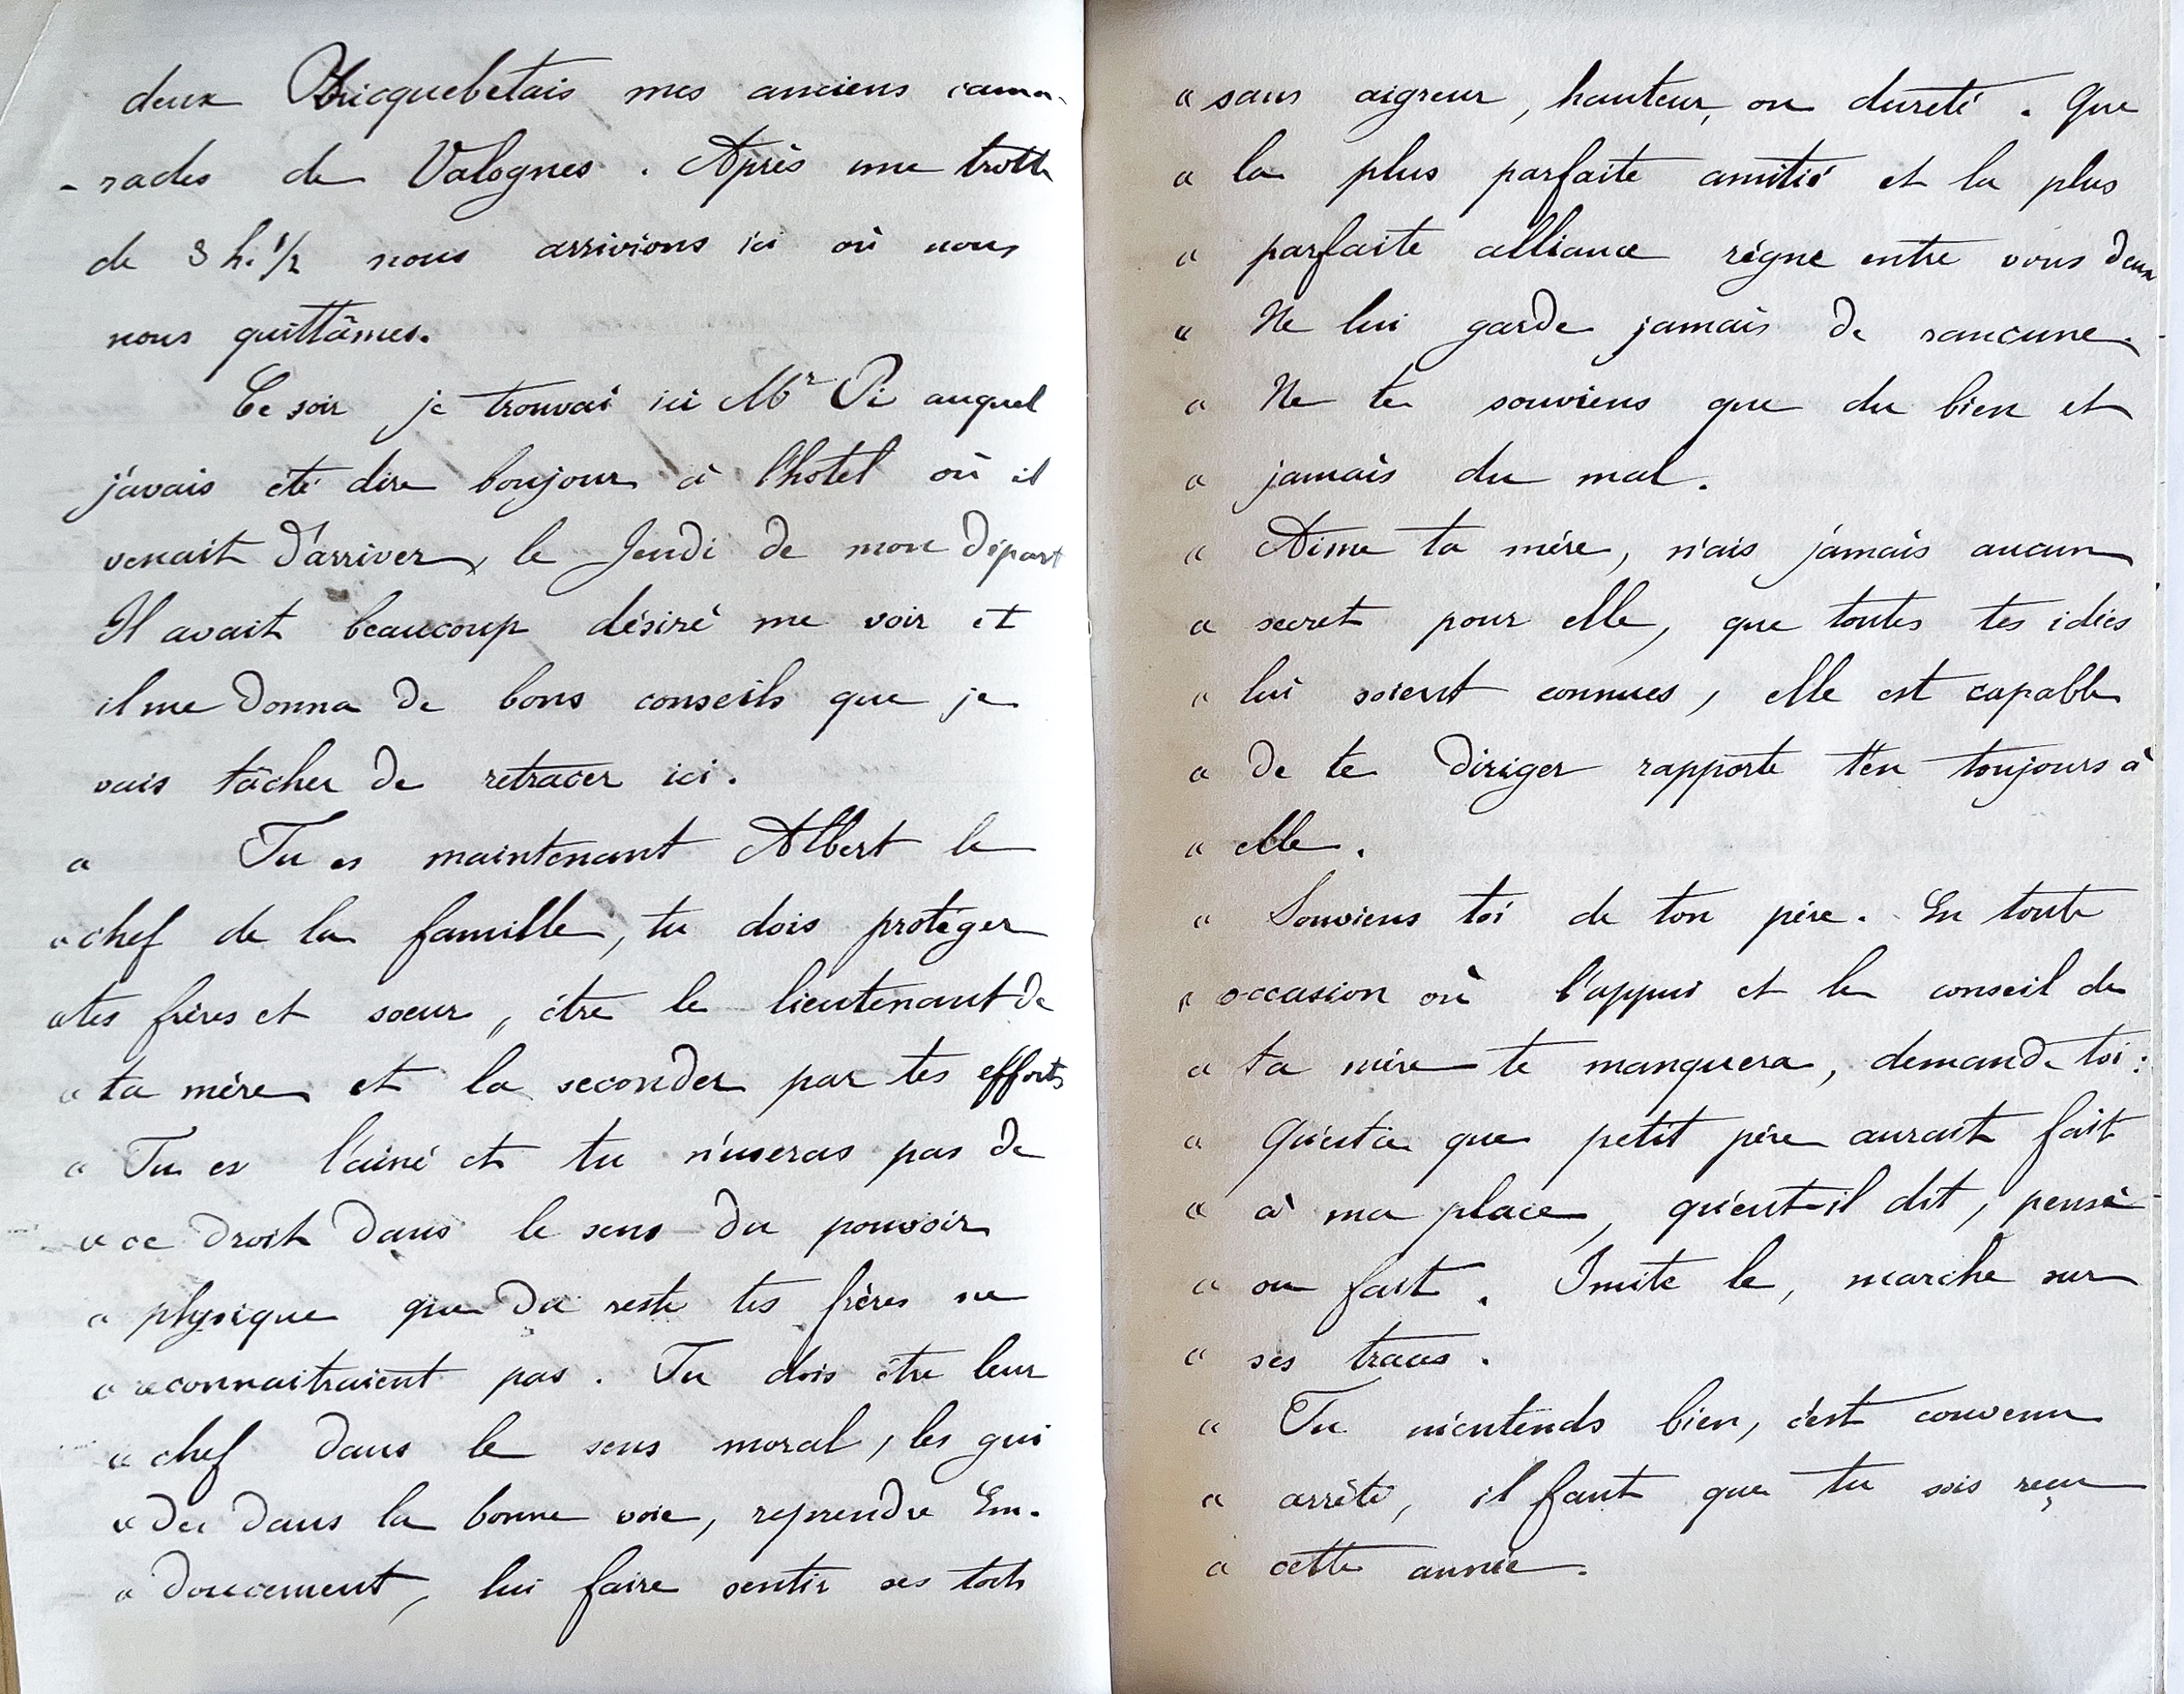 deux Bricquebetais mes anciens cama-
- rades de Valognes. Après une trotte
de 3 h. 1/2 nous arrivions ici où nous
nous quittâmes.
Ce soir je trouvai ici Mr Pi auquel
j'avais été dire bonjour à l'hotel où il
venait d'arriver, le Jeudi de mon départ
Il avait beaucoup désiré me voir et
il me donna de bons conseils que je
vais tâcher de retracer ici.
« Tu es maintenant Albert le
« chef de la famille, tu dois protéger
« tes frères et soeur, être le lieutenant de
« ta mère et la seconder par tes efforts
« Tu es l'ainé et tu n'useras pas de
« ce droit dans le sens du pouvoir
« physique que du reste tes frères ne
« reconnaitraient pas. Tu dois être leur
« chef dans le sens moral, les gui
« der dans la bonne voie, reprendre Em.
« doucement, lui faire sentir ses torts
« sans aigreur, hauteur, ou dureté. Que
« la plus parfaite amitié et la plus
« parfaite alliance règne entre vous deux
« Ne lui garde jamais de rancune.
« Ne te souviens que du bien et
« jamais du mal.
« Aime ta mère, n'ais jamais aucun
« secret pour elle, que toutes tes idées
« lui soient connues, elle est capable
« de te diriger rapporte t'en toujours à
« elle.
« Souviens toi de ton père. En toute
« occasion où l'appui et le conseil de
« ta mère te manquera, demande toi :
« Qu'est ce que petit père aurait fait
« à ma place, qu'eut-il dit, pensé
« ou fait. Imite le, marche sur
« ses traces.
« Tu m'entends bien, c'est convenu
« arrêté, il faut que tu sois reçu
« cette année.